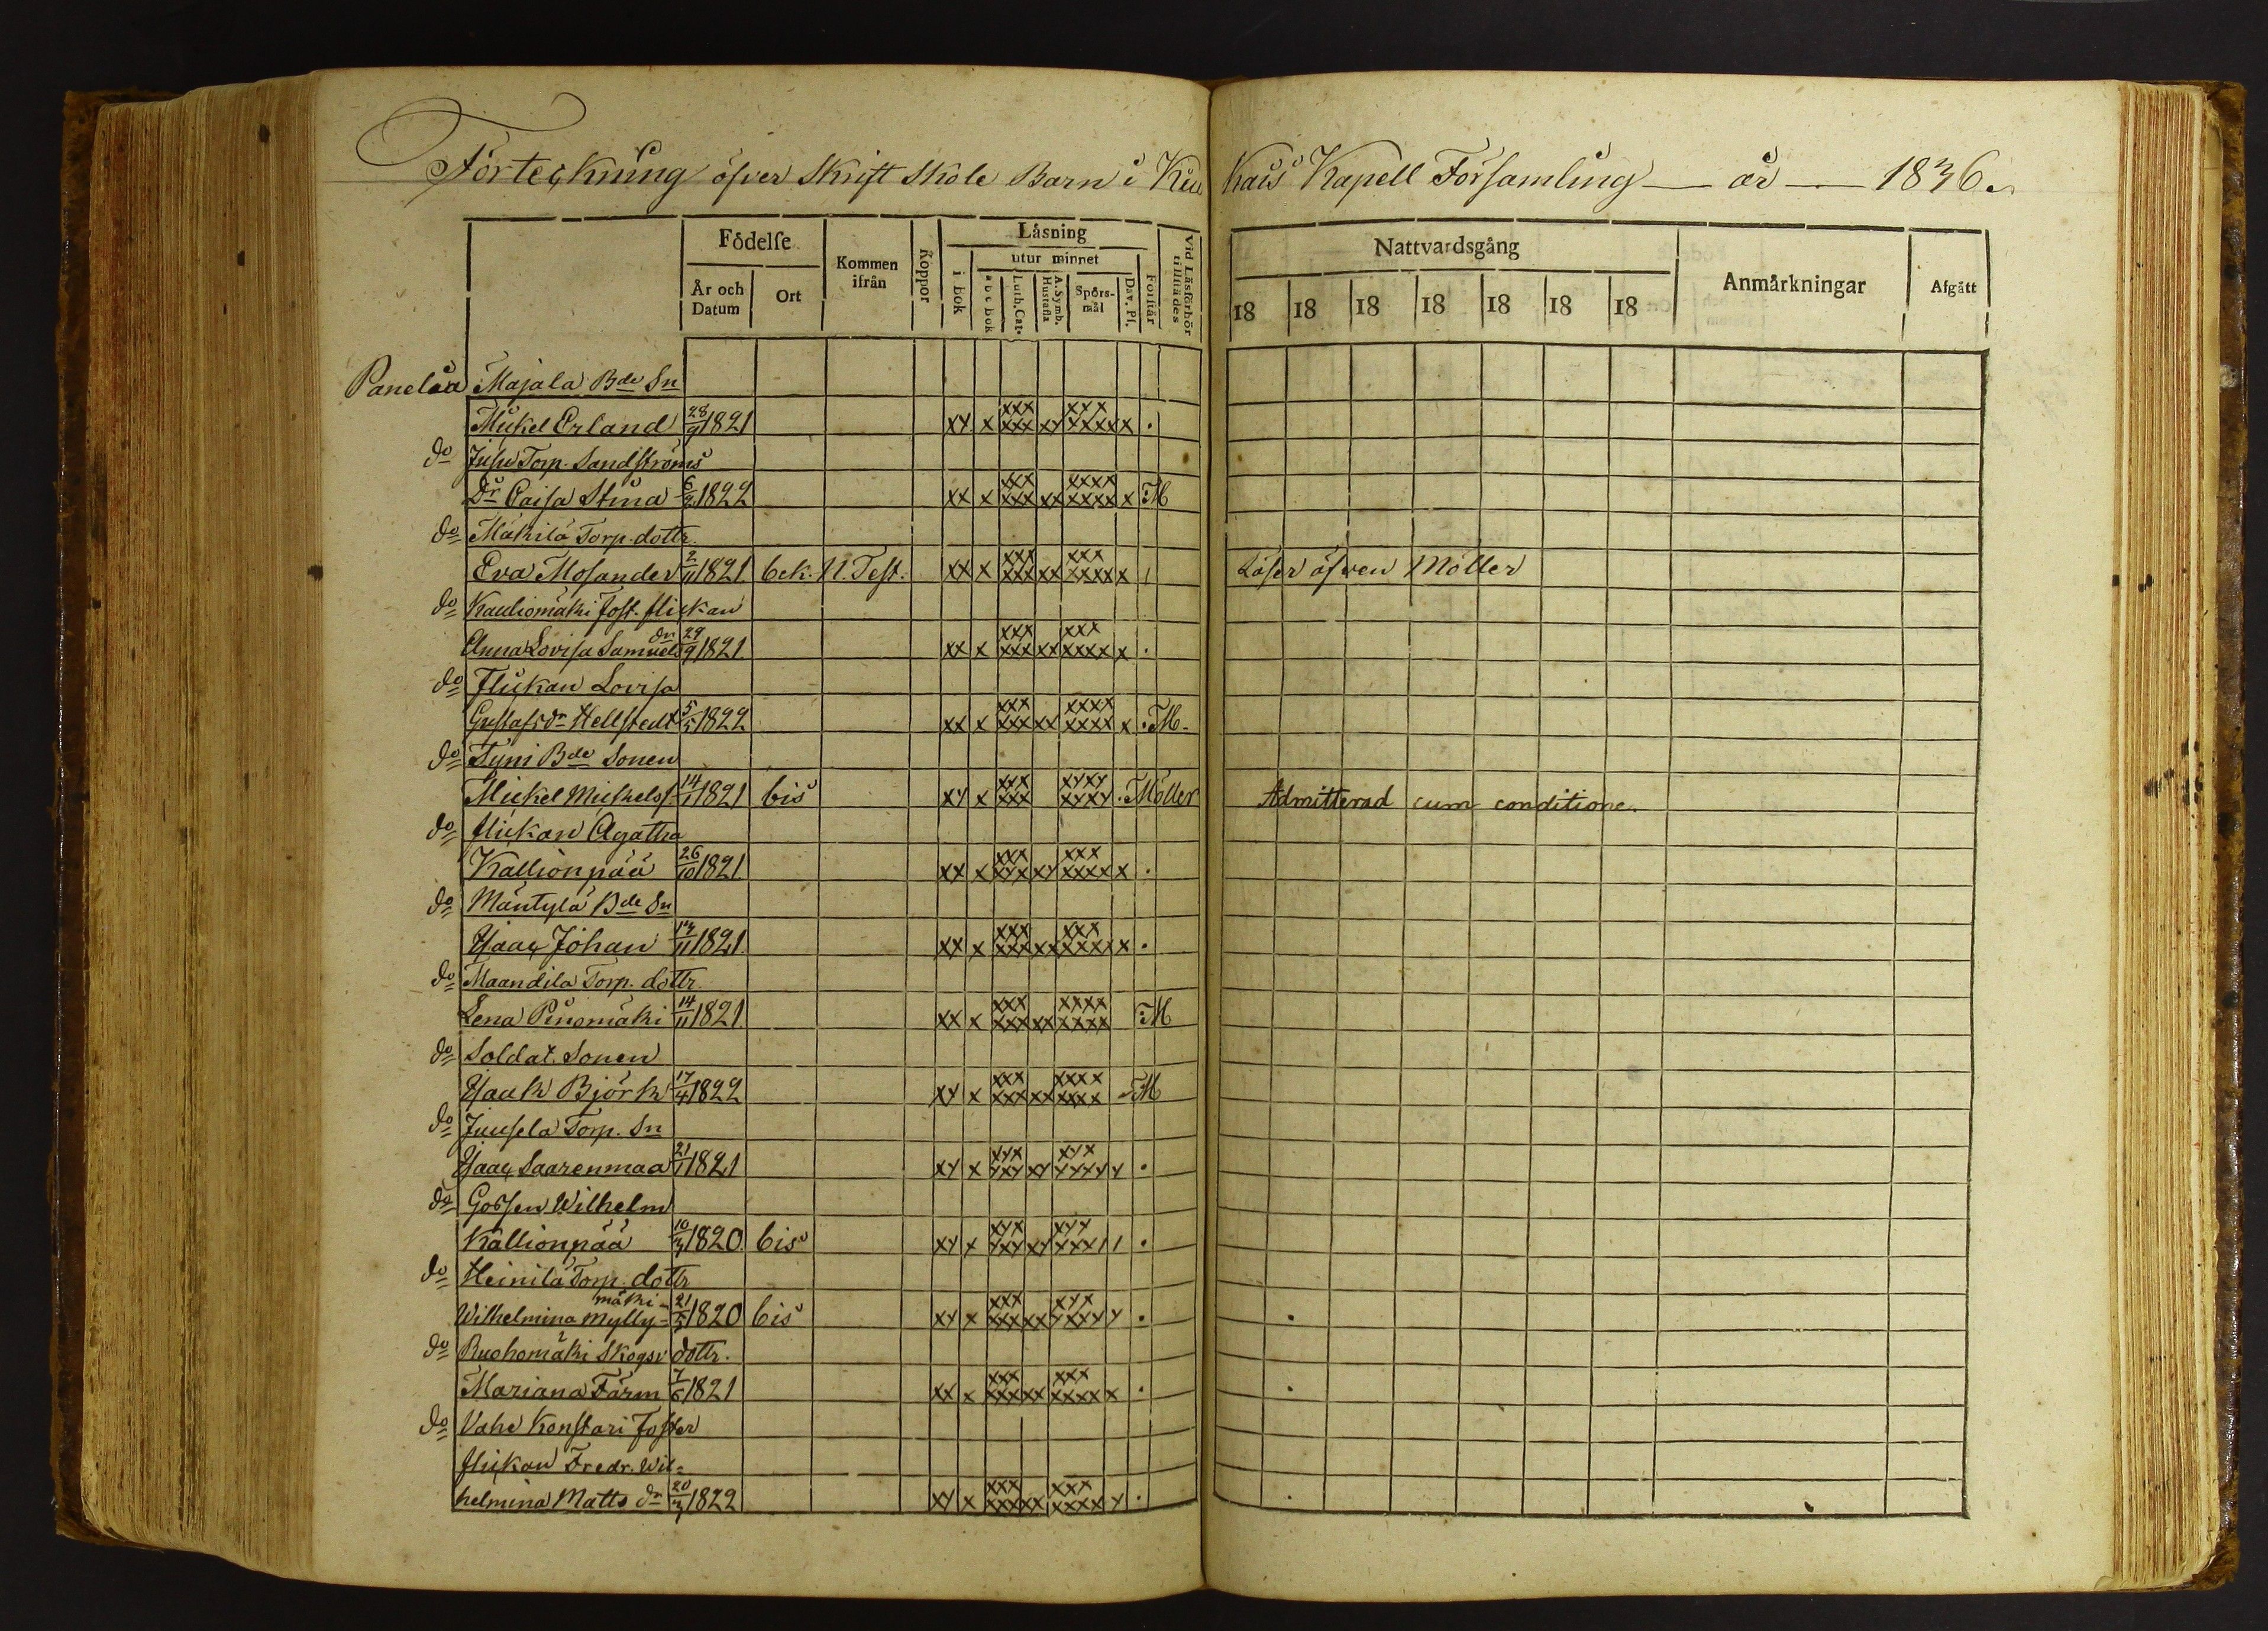 Förteckning öfver Skrift Skole Barn i Kiu Kais Kapell Församling — år — 1836.
Födelse
År och Datum
Ort
Kommen ifrån
Koppor
Läsning
i bok
utur minnet
a b c bok
Luth. Cat.
A. Symb. Hustafla
Spörs-mål
Dav. Ps.
Förstår
Vid Läsförhör tillstädes
Nattvardsgång
18 18 18 18 18 18 18
Anmärkningar
Afgått
Panelia Majala Bde Sn
Mickel Erland 28/9 1821 xy x xxx xxx xy xxx xxxx x .
do Juse Torp. Sandströms
Dr Caisa Stina 6/2 1822 xx x xxx xxx xx xxxx xxxx x M
do Mäkilä Torp. dottr.
Eva Mosander 2/11 1821 bek. N. Test. xx x xxx xxx xx xxx xxxx x Läser öfven Möller
do Kauliomäki Fost. flickan
Anna Lovisa Samuels dr 29/9 1821 xx x xxx xxx xx xxx xxxx x .
do Flickan Lovisa
Gustafs dr Hellstedt 5/5 1822 xx x xxx xxx xx xxxx xxxx x . M.
do Tyni Bde Sonen
Mickel Mickelss. 14/1 1821 bis xy x xxx xxx xyxy xyxy . Möller Admitterad cum conditione.
do flickan Agatha
Kallionpää 26/10 1821 xx x xxx xyx xy xxx xxxx x .
do Mäntylä Bde Sn
Isaac Johan 14/11 1821. xx x xxx xxx xx xxx xxxx x .
do Maandila Torp. dottr.
Lena Pinomäki 14/11 1821 xx x xxx xxx xx xxxx xxxx M
do Soldat. Sonen
Isaak Björk 17/4 1822 xy x xxx xxx xx xxxx xxxx M
do Juusela Torp. Sn
Isaac Saarenmaa 21/1 1821 xy x xyx yxy xy xyx yyyy y .
do Gossen Wilhelm
Kallionpää 10/3 1820 bis xy x xyx yxy xy xyy yxx .
do Heinilä Torp. dottr
Wilhelmina Mylly-mäki 21/5 1820 bis xy x xxx xxx xx xyx yxyy y .
do Ruohomäki Skogsv dottr.
Mariana Färm 7/6 1821 xx x xxx xxx xx xxx xxxx x .
do Vahe Konstari Foster
flickan Fredr. Wil=
helmina Matts dr 20/3 1822 xy x xxx xxx xx xxx xxxx y .